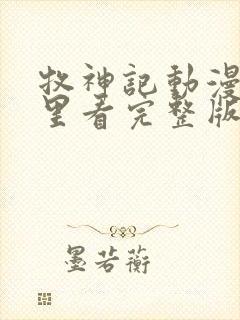 牧神記動漫
里看完整版
墨若蘅